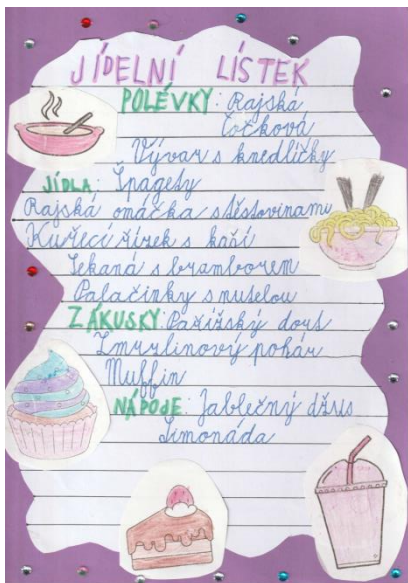 JÍDELNÍ LÍSTEK
POLÉVKY: Rajská
Čočková
Vývar s knedlíčky
JÍDLA: Špagety
Rajská omáčka s těstovinami
Kuřecí řízek s kaší
Sekaná s bramborem
Palačinky s nutelou
ZÁKUSKY: Pařížský dort
Zmrzlinový pohár
Muffin
NÁPOJE: Jablečný džus
Limonáda